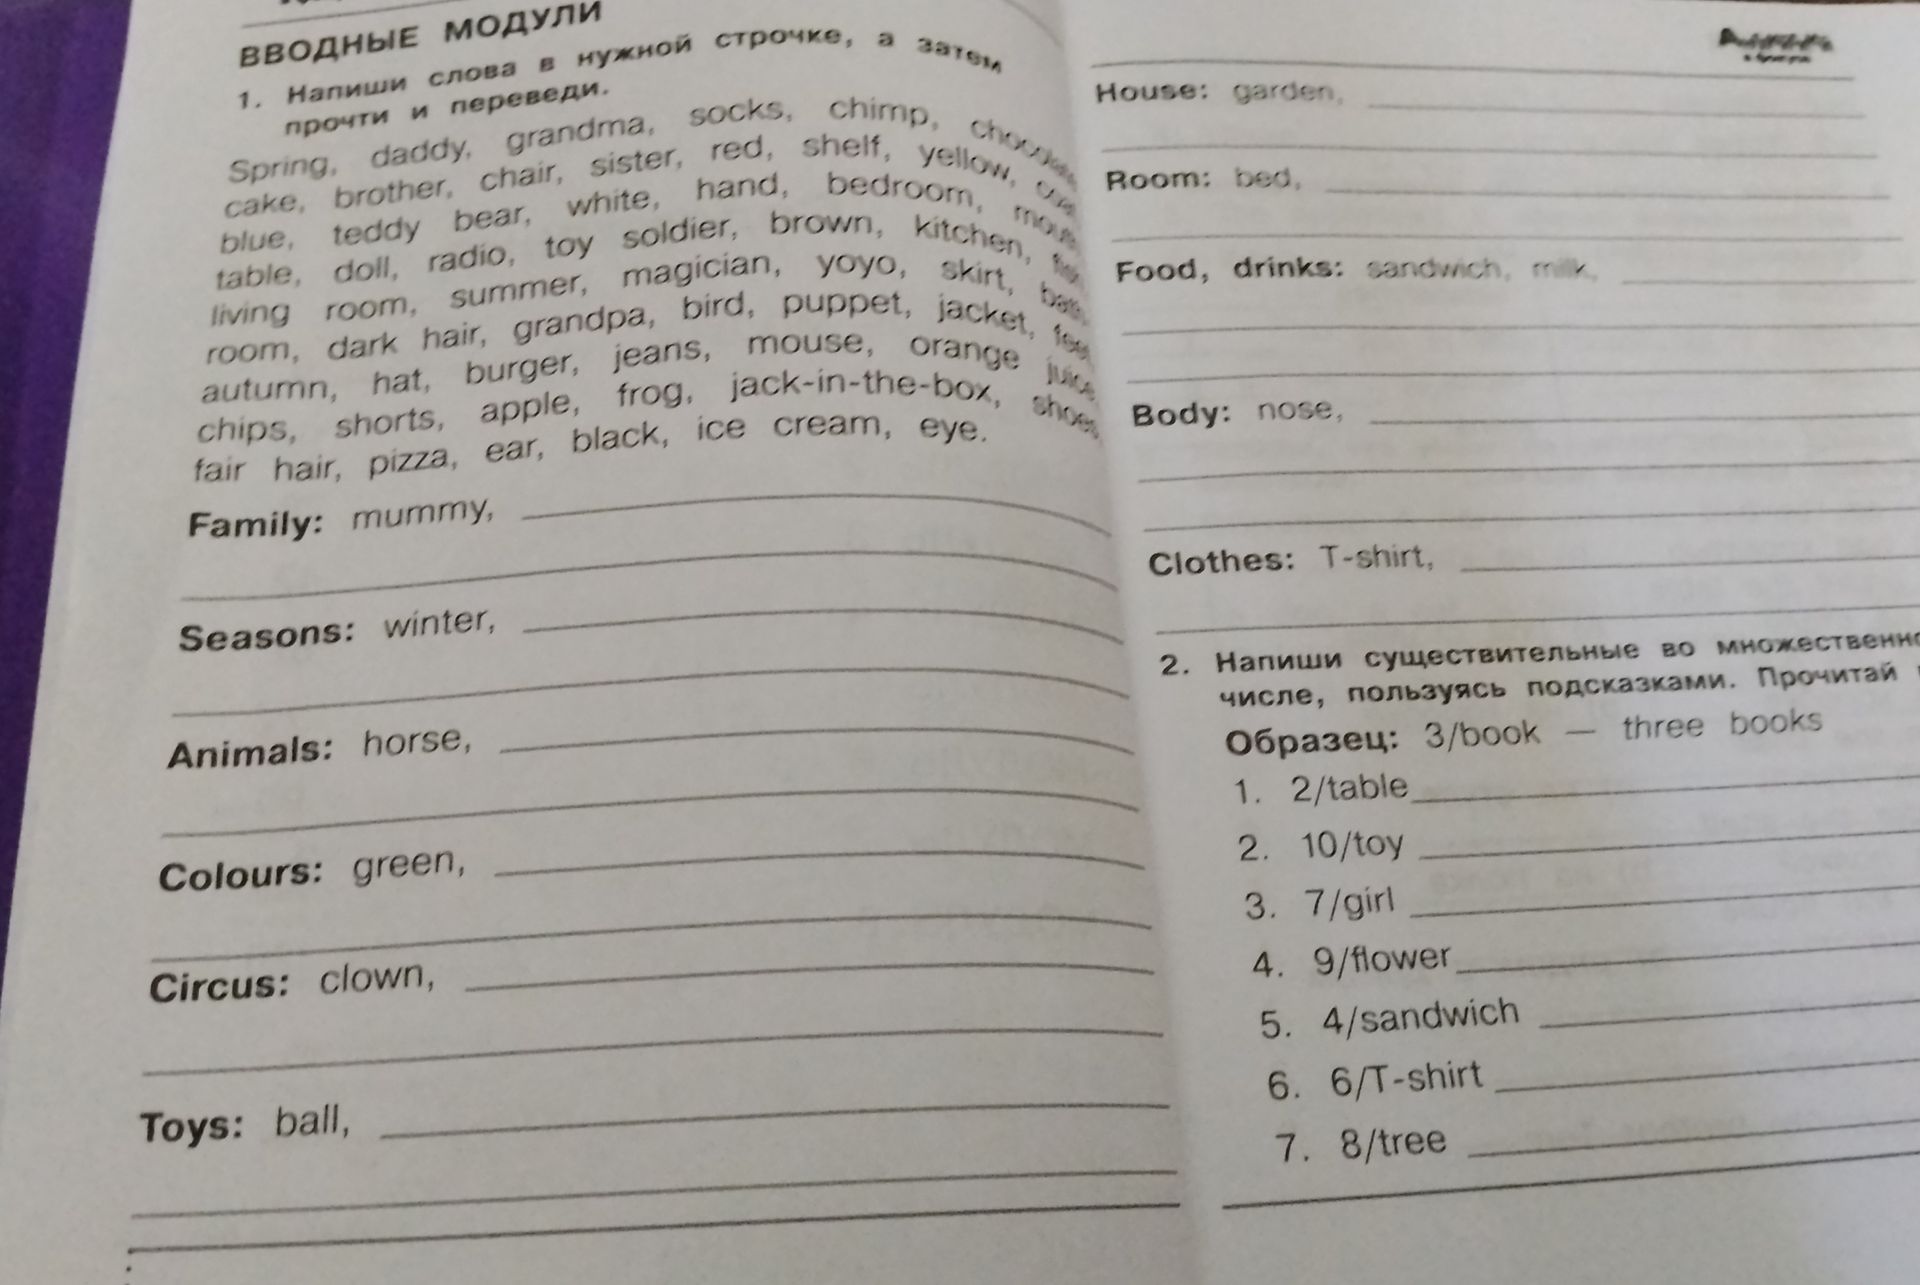 ВВОДНЫЕ МОДУЛИ
1. Напиши слова в нужной строчке, а затем
прочти и переведи.
Spring, daddy, grandma, socks, chimp, chocolate
cake, brother, chair, sister, red, shelf, yellow,
blue, teddy bear, white, hand, bedroom,
table, doll, radio, toy soldier, brown, kitchen, fish
living room, summer, magician, yoyo, skirt, bath
room, dark hair, grandpa, bird, puppet, jacket, feet
autumn, hat, burger, jeans, mouse, orange juice
chips, shorts, apple, frog, jack-in-the-box, shoes
fair hair, pizza, ear, black, ice cream, eye.
Family: mummy,
Seasons: winter,
Animals: horse,
Colours: green,
Circus: clown,
Toys: ball,
House: garden,
Room: bed,
Food, drinks: sandwich, milk,
Body: nose,
Clothes: T-shirt,
2. Напиши существительные во множественно
числе, пользуясь подсказками. Прочитай
Образец: 3/book — three books
1. 2/table
2. 10/toy
3. 7/girl
4. 9/flower
5. 4/sandwich
6. 6/T-shirt
7. 8/tree